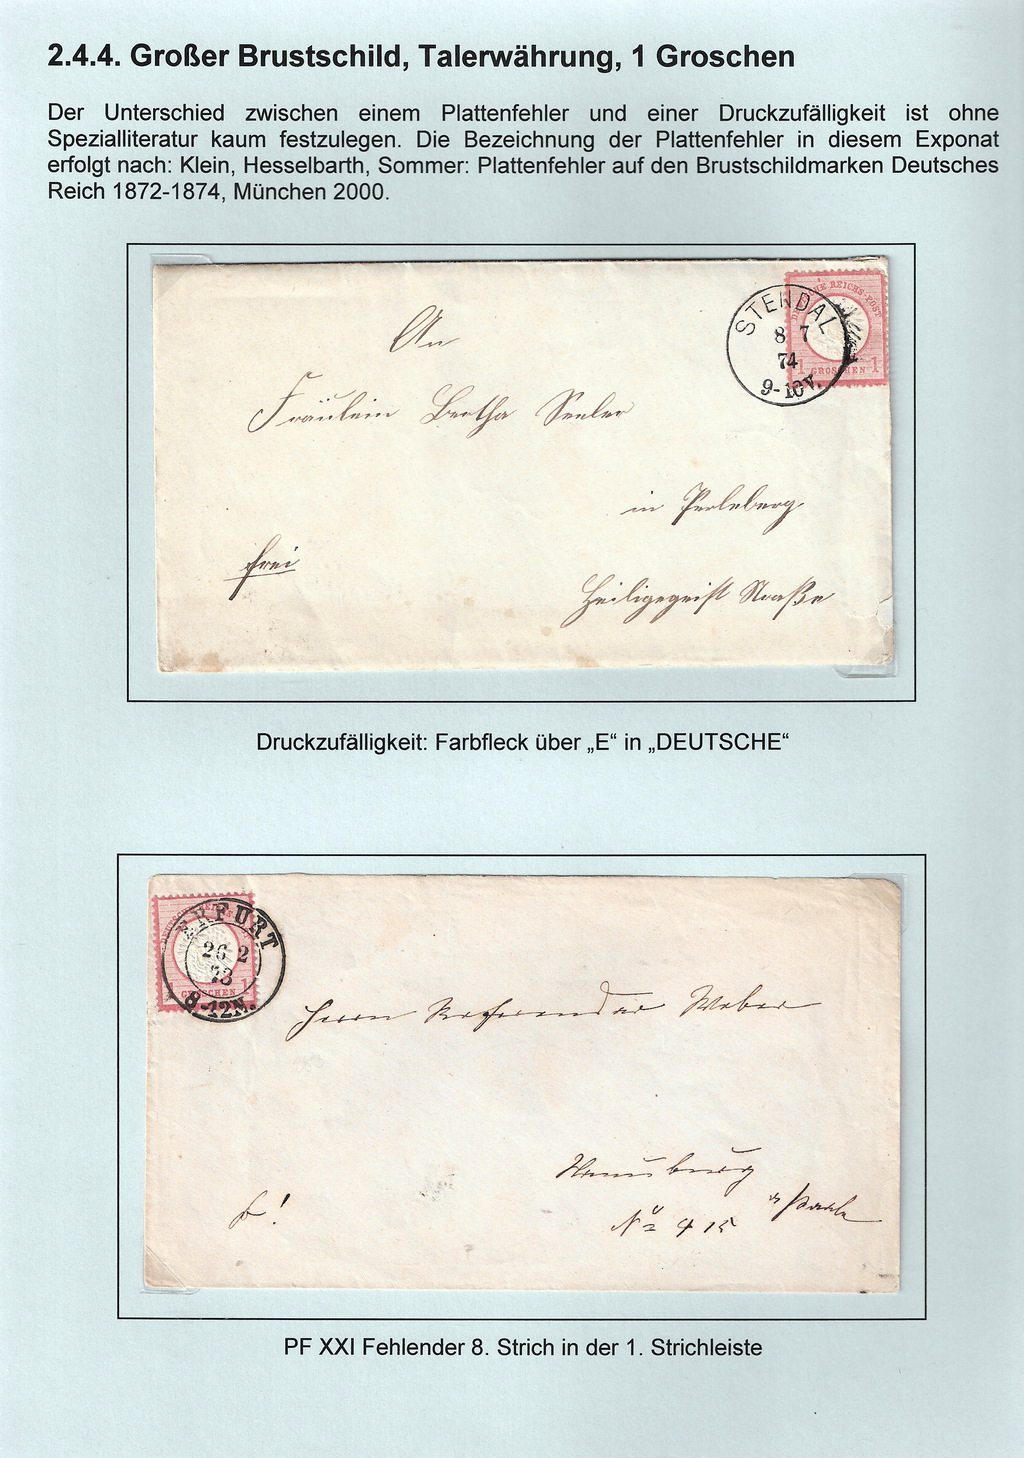 2.4.4. Großer Brustschild, Talerwährung, 1 Groschen
Der Unterschied zwischen einem Plattenfehler und einer Druckzufälligkeit ist ohne
Spezialliteratur kaum festzulegen. Die Bezeichnung der Plattenfehler in diesem Exponat
erfolgt nach: Klein, Hesselbarth, Sommer: Plattenfehler auf den Brustschildmarken Deutsches
Reich 1872-1874, München 2000.
STENDAL
8 7
74
9-10V.
REICHS-POST
1 GROSCHEN 1
An
Fräulein Bertha Seeler
in Perleberg
frei
Heiligegeist Straße
Druckzufälligkeit: Farbfleck über „E“ in „DEUTSCHE“
ERFURT
26 2
73
8-12N.
GROSCHEN 1
Herrn Referendar Weber
Naumburg
a/Saale
f!
No 415
PF XXI Fehlender 8. Strich in der 1. Strichleiste